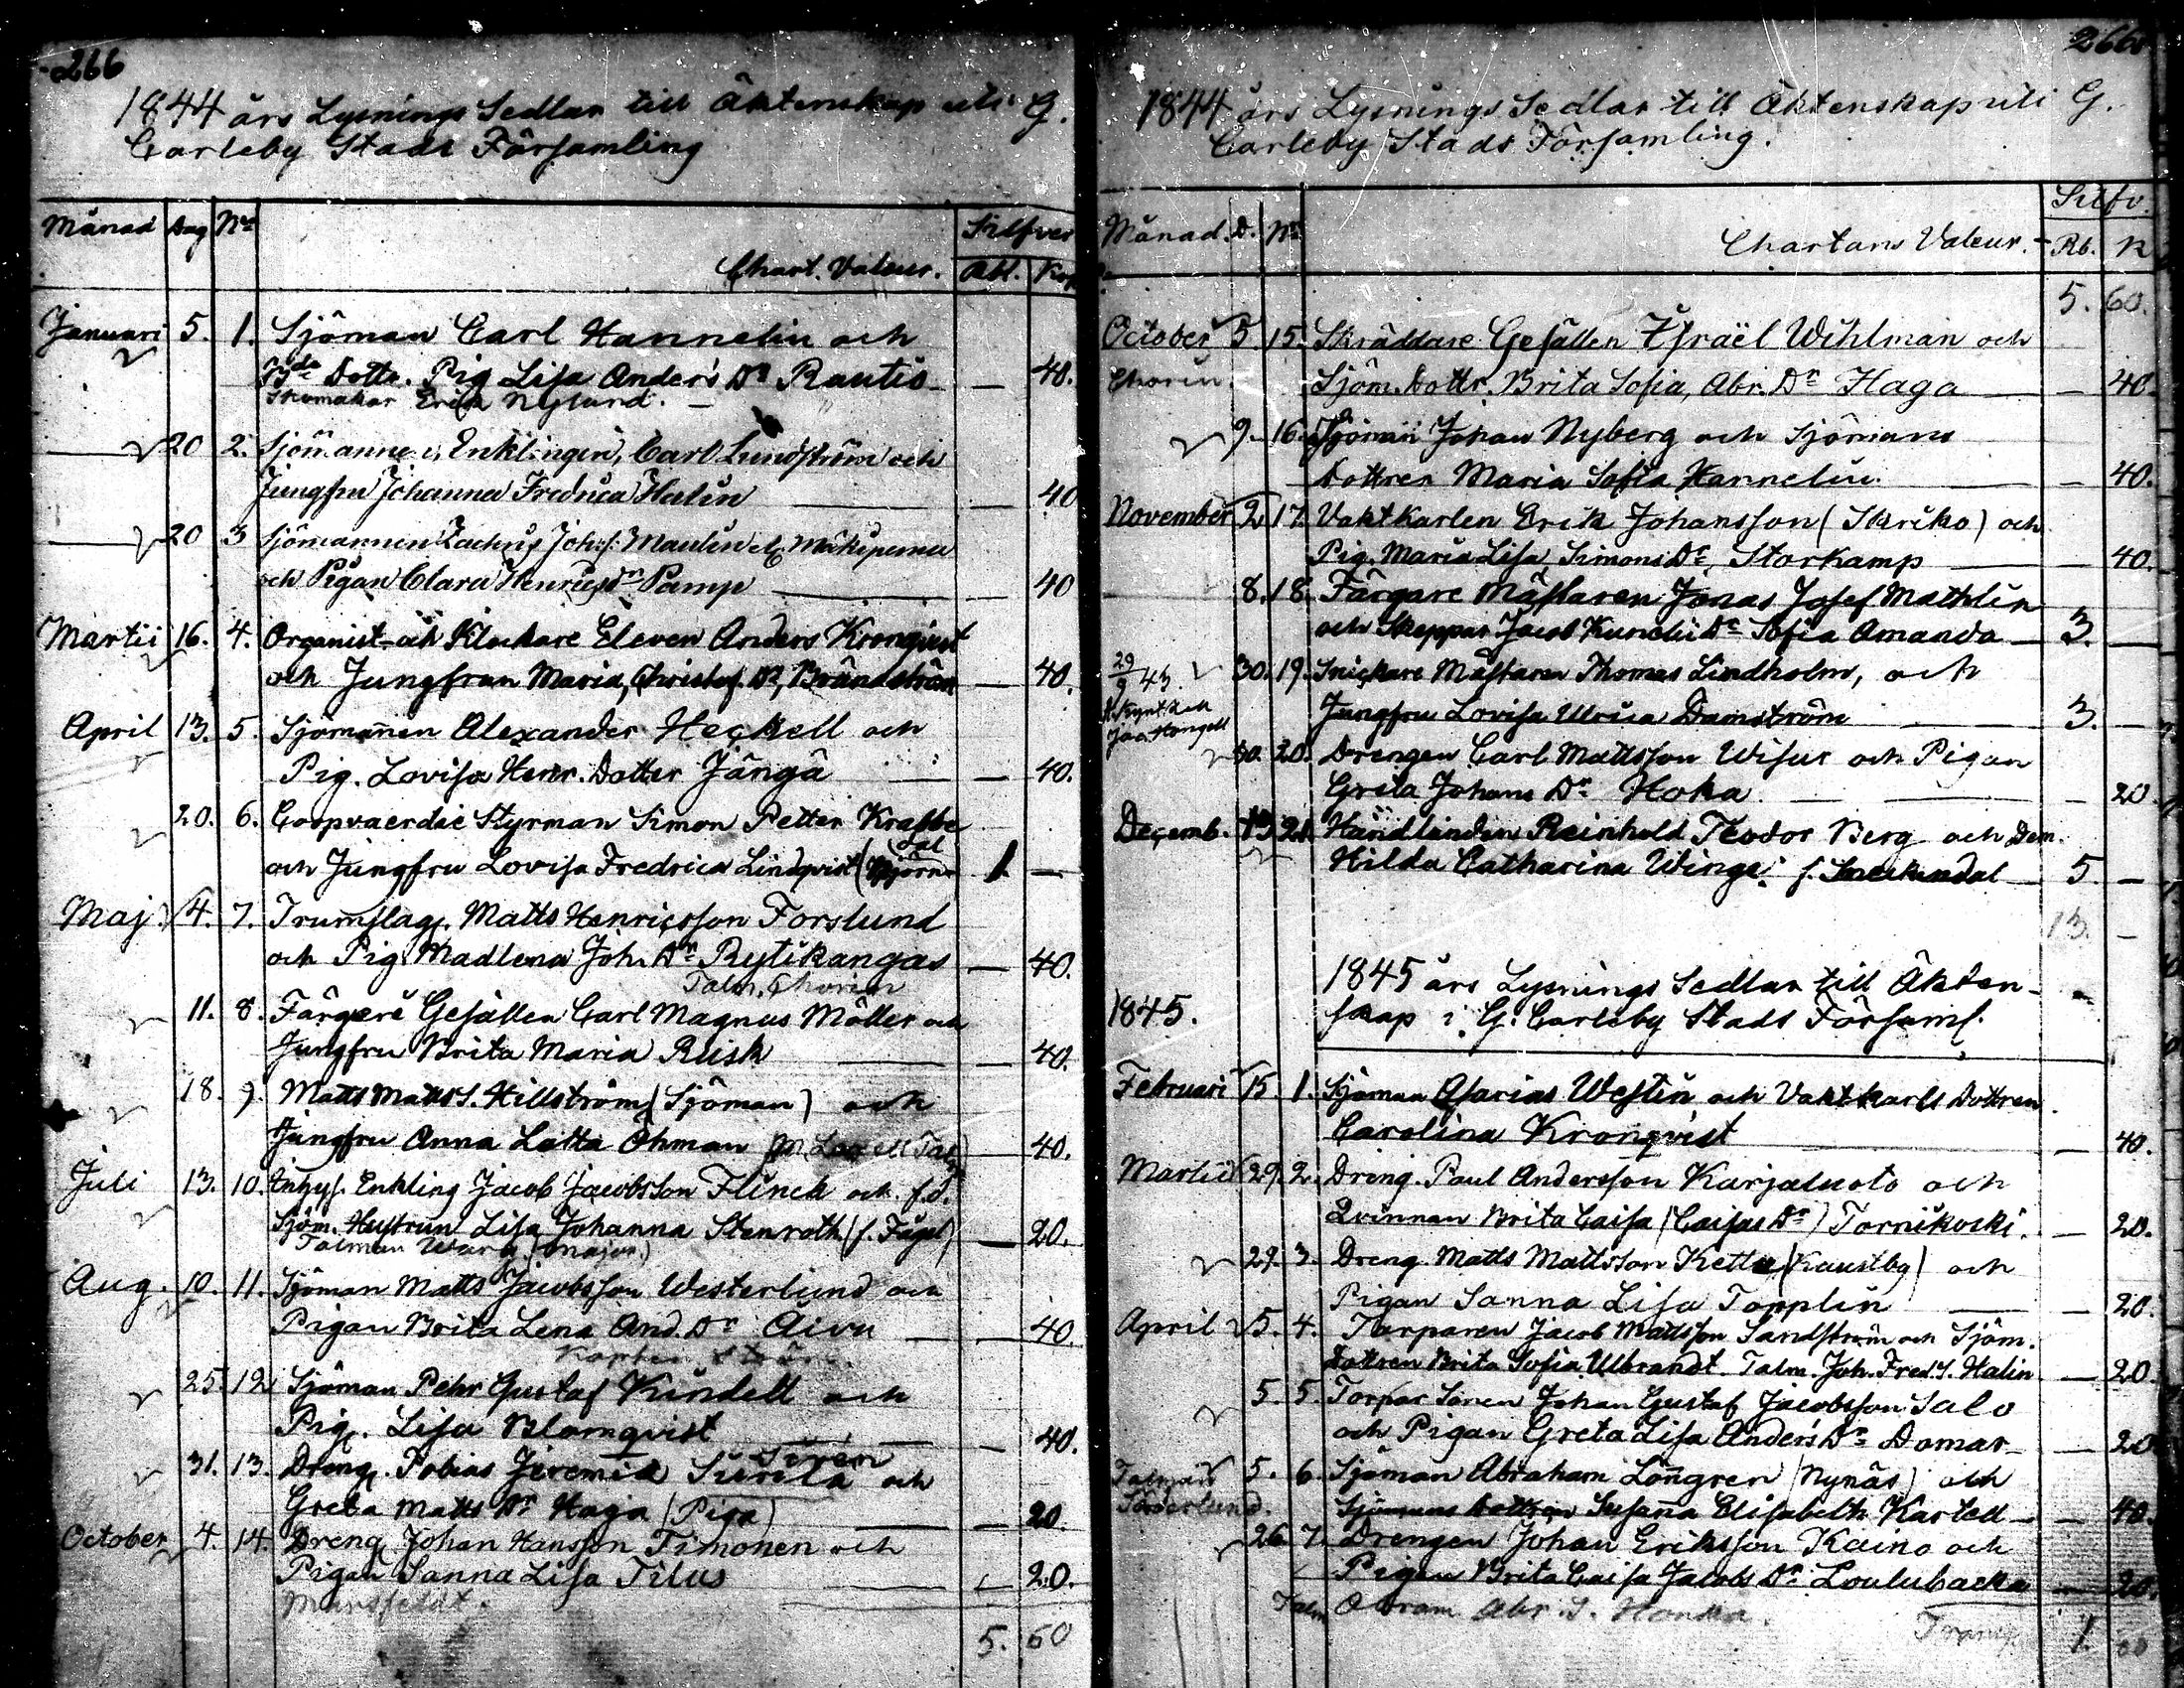 266
1844 års Lysnings Sedlar till Äktenskap uti G.
Carleby Stads Församling
Månad Dag No Silfver
Chart. Valeur. Rbl. Kop
Januari 5. 1. Sjöman Carl Hannelin och
Dotte. Pig Lisa Anders Dr Rautio — 40.
Skomakar Erik Nylund. —
20 2. Sjömannen, Enklingen, Carl Lundström och
Jungfru Johanna Fredrica Halin — 40
20 3 Sjömannen Zachris Johs. Maulin el. Mäkipernu
och Pigan Clara Henricsdr Pamp — 40
Martii 16. 4. Organist och Klockare Eleven Anders Kronqvist
och Jungfrun Maria, Christof. Dr, Brändström — 40.
April 13. 5. Sjömannen Alexander Heckell och
Pig. Lovisa Henr. Dotter Jångå — 40.
20. 6. Coopvaerdie Styrman Simon Petter Krabbe
dal
och Jungfru Lovisa Fredrica Lindqvist (Björn- 1. —
Maj. 4. 7. Trumslag. Matts Henricsson Forslund
och Pig Madlena Joh. Dr Rytikangas — 40.
Talm. Chorin
11. 8. Färgeri Gesällen Carl Magnus Möller och
Jungfru Brita Maria Risk — 40.
18. 9. Matts Matts S. Hillström (Sjöman) och
Jungfru Anna Lotta Öhman — 40.
Juli 13. 10. Inhys. Enkling Jacob Jacobsson Flinck och f.d.
Sjöm. Hustrun Lisa Johanna Stenroth (f. Fågel) — 20.
Talman Warg (major)
Aug. 10. 11. Sjöman Matts Jacobsson Westerlund och
Pigan Brita Lena And. Dr Äivu — 40.
Kapten Ström
25. 12 Sjöman Pehr Gustaf Kindell och
Pig. Lisa Blomqvist — 40.
Sirén
31. 13. Dreng. Tobias Jeremia Siirilä och
Greta Matts Dr Haga (Piga) — 20.
October 4. 14. Dreng Johan Hansson Timonen och
Pigan Sanna Lisa Tilus — 20.
Mansfeldt.
5. 60
266
1844 års Lysnings Sedlar till Äktenskap uti G.
Carleby Stads Församling.
Silfv.
Månad. D. No Chartans Valeur. - Rb. K
5. 60.
October 5. 15. Skräddare Gesällen Israël Wihlman och
Chorin. Sjöm. Dottr. Brita Sofia, Abr. Dr Haga — 40.
9. 16. Sjöman Johan Nyberg och Sjömans
Dottren Maria Sofia Hannelin. — 40.
November 2. 17. Vaktkarlen Erik Johansson (Skriko) och
Pig. Maria Lisa, Simons Dr, Storkamp — 40.
8. 18. Färgare Mästaren Jonas Josef Mathlin
och Skeppar Jacob Kunelii Dr Sofia Amanda — 3. —
29/9 43. 30. 19. Snickare Mästaren Thomas Lindholm, och
Jungfru Lovisa Ulrica Damström 3. —
30. 20. Drengen Carl Mattsson Wisur och Pigan
Greta Johans Dr Hoka — 20
Decemb. 13 21. Handlanden Reinhold Teodor Berg och Dem.
Hilda Catharina Winge f. 5. —
13. —
1845 års Lysnings Sedlar till Äkten-
1845. skap i G. Carleby Stads Församl.
Februari 15 1. Sjöman Asarias Westin och Vaktkarls Dottren
Carolina Kronqvist — 40.
Martii 29. 2. Dräng. Paul Andersson Karjaluoto och
Qvinnan Brita Caisa (Caisas Dr) Tornikoski. — 20.
29. 3. Dreng. Matts Mattsson Kettu (Kaustby) och
Pigan Sanna Lisa Topplin — 20.
April 5. 4. Torparen Jacob Mattsson Sandström och Sjöm.
dottren Brita Sofia Ulbrandt. Talm. Joh. Fred. S. Halin — 20.
5. 5. Torpar Sonen Johan Gustaf Jacobsson Salo
och Pigan Greta Lisa Anders Dr Domar — 20
Talman 5. 6. Sjöman Abraham Lonngren (Nynäs) och
Söderlund. Sjömans Dottren Susanna Elisabeth Karlell — 40.
26 7. Drengen Johan Eriksson Kaino och
Pigan Brita Caisa Jacobs Dr Loulubacka — 20.
Talm Abram Abr. S. Honka. Transp. 1.